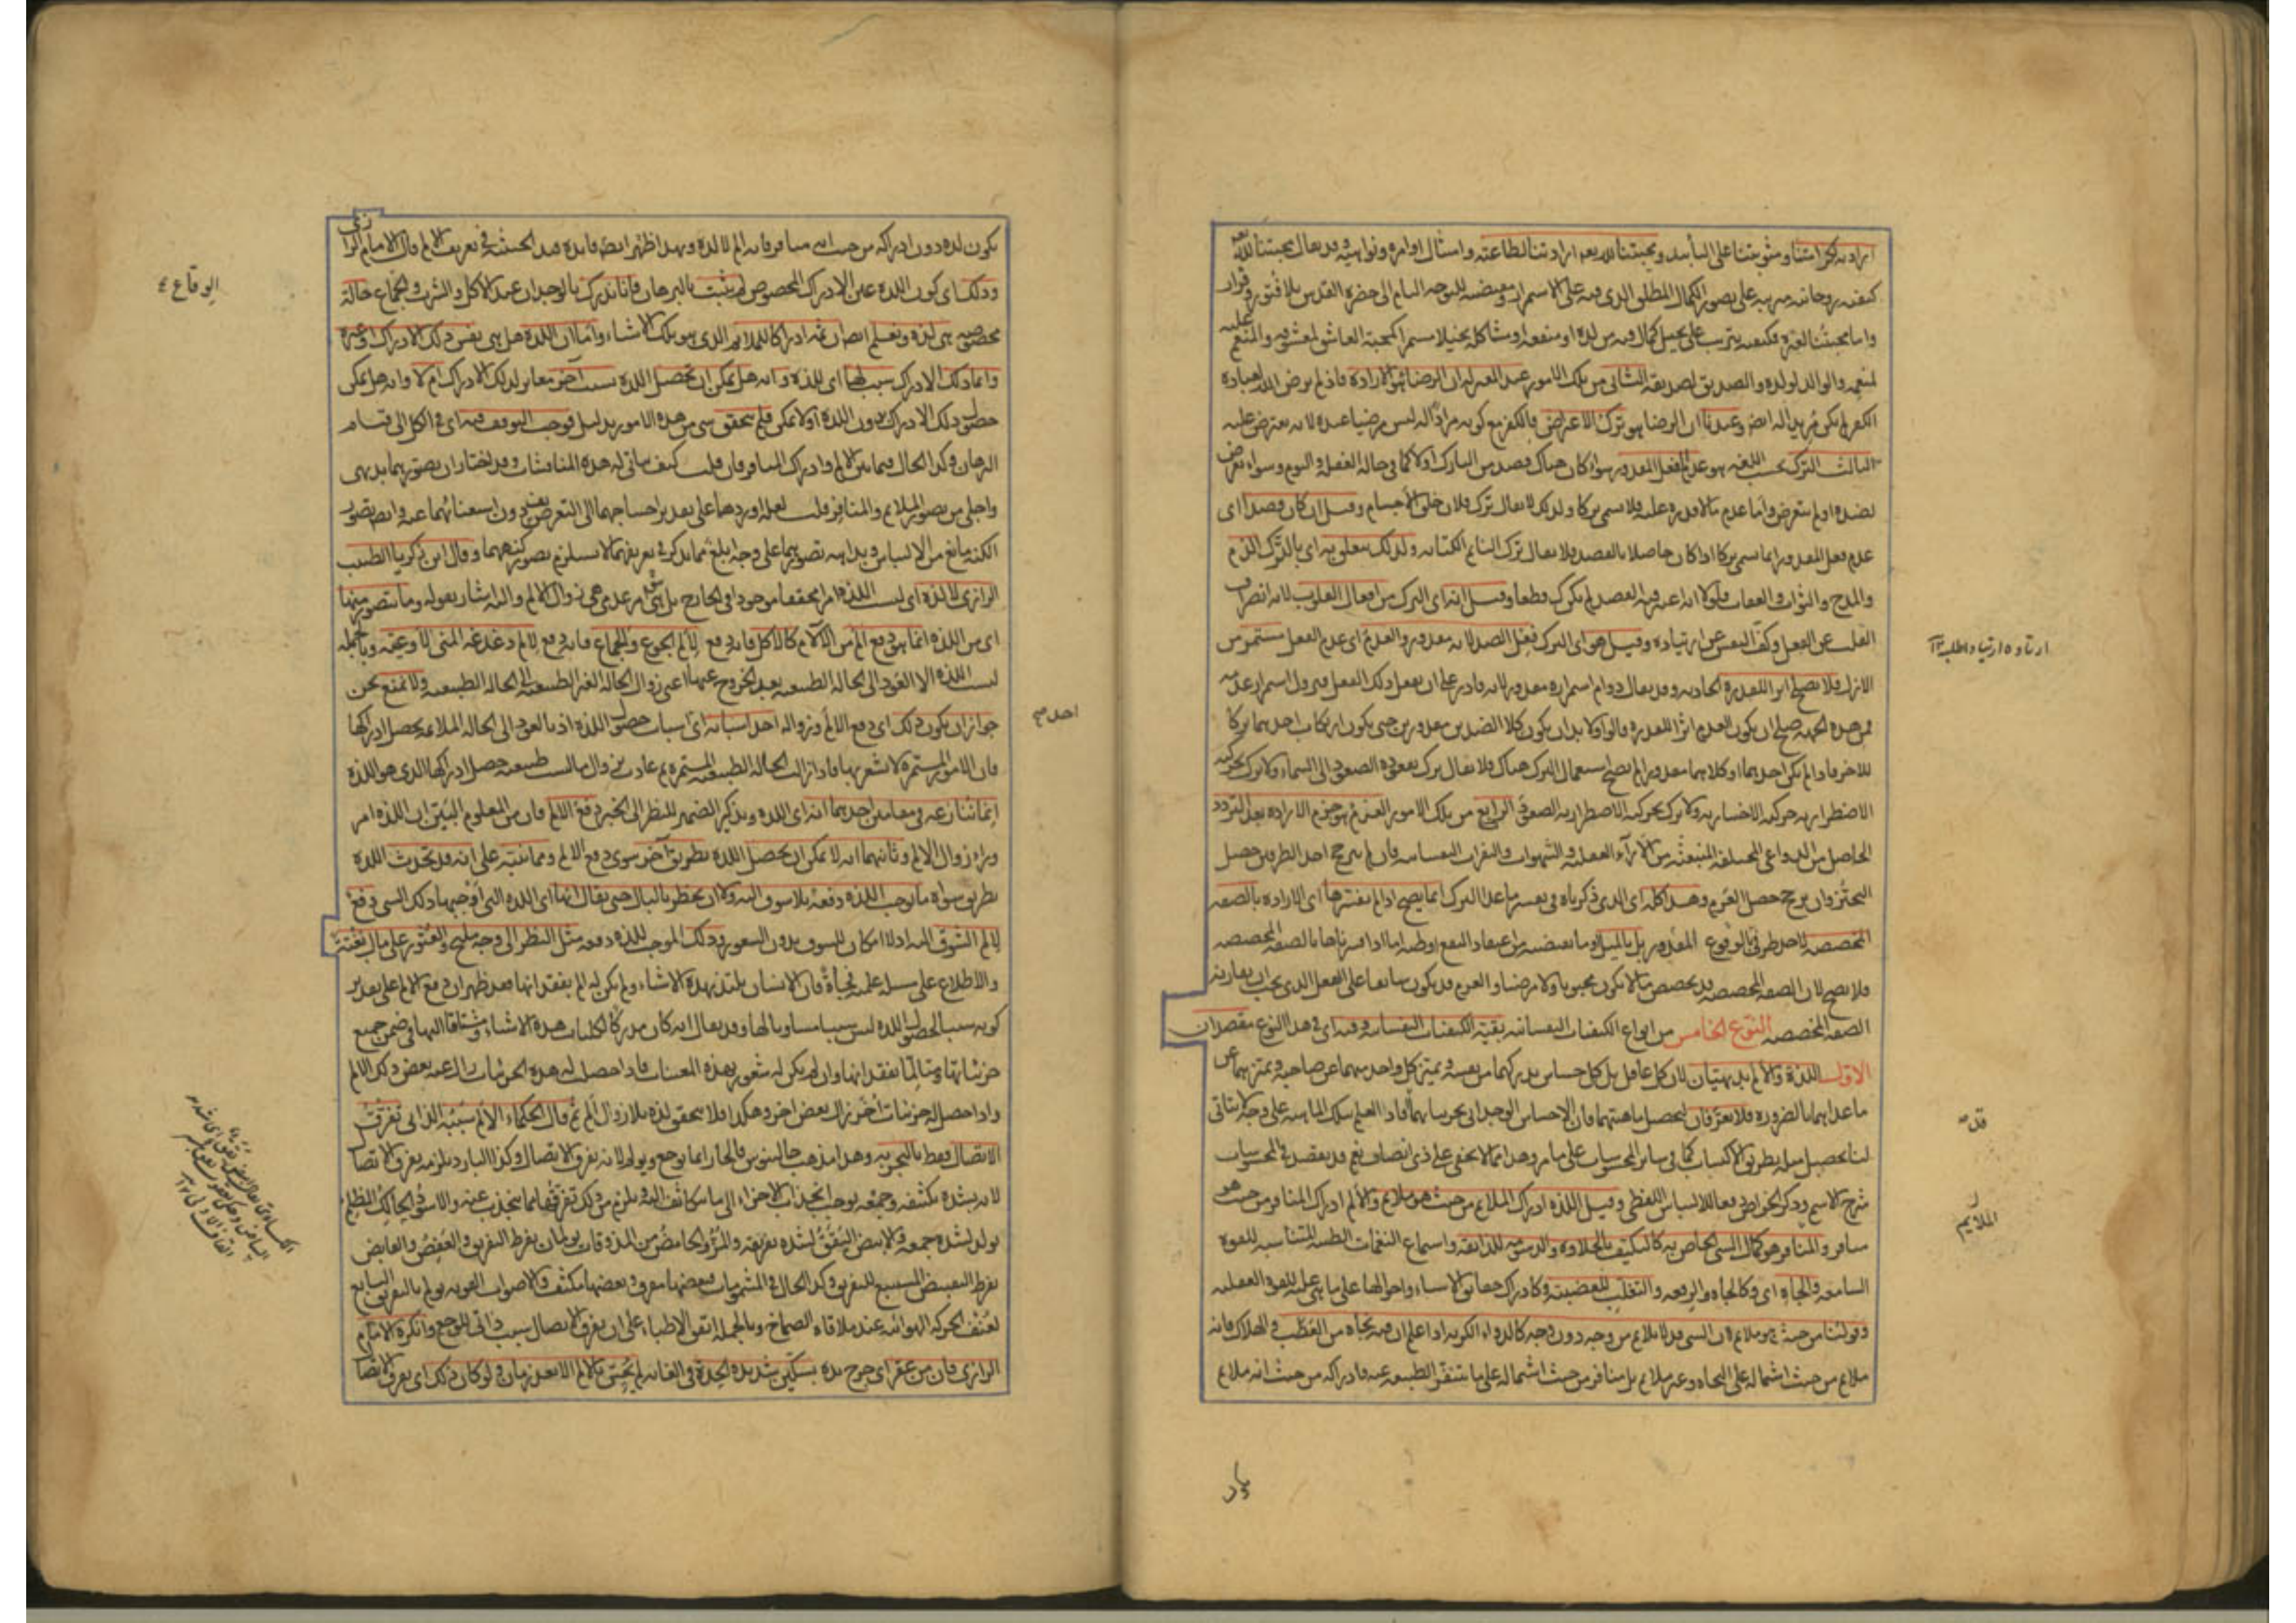 ارادته لكرامتنا ومثوبتنا على التأبيد ومحبتنا لله تعالى ارادتنا لطاعته وامتثال اوامره ونواهيه وقد يقال محبتنا لله تعالى
كيفية روحانية مترتبة على تصور الكمال المطلق الذي فيه على الاستمرار ومقتضية للتوجه التام الى حضرة القدس بلا فتور وفرار
واما محبتنا لغيره فكيفية يترتب على تخيل كمال فيه من لذة او منفعة او مشاكلة تخيلا مستمرا كمحبة العاشق لمعشوقه والمنعم عليه
لمنعمه والوالد لولده والصديق لصديقه الثاني من تلك الامور عند المعتزلة ان الرضا هو الارادة فاذ لم يرض الله لعباده
الكفر لم يكن مريدا له ايضا وعندنا ان الرضا هو ترك الاعتراض فالكفر مع كونه مرادا له ليس مرضيا عنده لانه يعترض عليه
الثالث الترك بحسب اللغة هو عدم الفعل المقدور سواء كان هناك قصد من التارك او لا كما في حالة الغفلة والنوم وسواء تعرض
لضده او لم يتعرض واما عدم ما لا قدرة عليه فلا يسمى تركا ولذلك لا يقال ترك فلان خلق الاجسام وقيل ان كان قصدا اى
عدم فعل المقدور انما يسمى تركا اذا كان حاصلا بالقصد فلا يقال ترك النائم الكتابة ولذلك يتعلق به اى بالترك الذم
والمدح والثواب والعقاب فلولا انه اعتبر فيه القصد لم يكن كذلك قطعا وقيل انه اى الترك من افعال القلوب لانه انصراف
القلب عن الفعل وكف النفس عن ارتياده وقيل هو اى الترك فعل الضد لانه مقدور والعدم اى عدم الفعل مستمر من
الازل فلا يصلح اثرا للقدرة الحادثة وقد يقال دوام استمراره مقدور لانه قادر على ان يفعل ذلك الفعل فيزول استمرار عدمه
فمن هذه الجهة صلح ان يكون العدم اثرا للقدرة قالوا ولا بد ان يكون كلا الضدين مقدورين حتى يكون ارتكاب احدهما تركا
للاخر فاذا لم يكن احدهما او كلاهما مقدورا لم يصح استعمال الترك هناك فلا يقال ترك بقعوده الصعود الى السماء ولا ترك بحركته
الاضطرارية حركته الاختيارية ولا ترك بحركته الاضطرارية الصعود الرابع من تلك الامور العزم هو جزم الارادة بعد التردد
الحاصل من الدواعي المختلفة المنبعثة من الآراء العقلية والشهوات والنفرات النفسانية فان لم يترجح احد الطرفين حصل
التحير وان ترجح حصل العزم وهذا كله اى الذي ذكرناه في تفسير ما عدا الترك انما يصح اذا لم نفسرها اى الارادة بالصفة
المخصصة لاحد طرفي المقدور بالوقوع بل بالميل وما يقتضيه من اعتقاد النفع او ظنه اما اذا فسرناها بالصفة المخصصة
فلا يصح لان الصفة المخصصة قد يخصص ما لا يكون محبوبا ولا مرضيا والعزم قد يكون سابقا على الفعل الذي يجب ان يقارنه
الصفة المخصصة النوع الخامس من انواع الكيفيات النفسانية بقية الكيفيات النفسانية وفيه اى في هذا النوع مقصدان
الاول اللذة والألم بديهيتان لان كل عاقل بل كل حساس يدركهما من نفسه ويميز كل واحد منهما عن صاحبه ويميزهما عن
ما عداهما بالضرورة فلا يعرفان لتحصيل ماهيتهما فان الاحساس الوجداني بجزئياتهما قد افاد العلم بتلك الماهية على وجه لا يتاتى
لنا تحصيل مثله بطريق الاكتساب كما في سائر المحسوسات على ما مر وهذا مما لا يخفى على ذي انصاف نعم قد يقصد في المحسوسات
شرح الاسم وذكر الخواص دفعا للالتباس اللفظي وقيل اللذة ادراك الملائم من حيث هو ملائم والألم ادراك المنافر من حيث هو
منافر والملائم هو كمال الشئ الخاص به كالتكيف بالحلاوة والدسومة للذائقة واستماع النغمات الطيبة المتناسبة للقوة
السامعة والجاه اى وكالجاه والرفعة والتغلب للغضبية وكادراك حقائق الاشياء واحوالها على ما هي عليه للقوة العقلية
وقولنا من حيث هو ملائم لان الشئ قد يلائم من وجه دون وجه كالدواء الكريه اذا علم ان فيه نجاة من العطب والهلاك فانه
ملائم من حيث اشتماله على النجاة وغير ملائم بل منافر من حيث اشتماله على ما يتنفر الطبيعة عنه فادراكه من حيث انه ملائم
ارتاده ارتيادا طلبه ١٢
الملايم
يكون لذة دون ادراكه من حيث انه منافر فانه ألم لا لذة وبهذا ظهر ايضا فائدة قيد الحيثية في تعريف الالم قال الامام الرازي
وذلك اى كون اللذة عين الادراك المخصوص لم يثبت بالبرهان فانا ندرك بالوجدان عند الاكل والشرب والجماع حالة
مخصوصة هي لذة ونعلم ايضا ان ثمه ادراكا للملائم الذي هو تلك الاشياء واما ان اللذة هل هي نفس ذلك الادراك او غيره
وانما ذلك الادراك سبب لها اى للذة وانه هل يمكن ان تحصل اللذة بسبب آخر مغاير لذلك الادراك ام لا وانه هل يمكن
حصول ذلك الادراك بدون اللذة او لا يمكن فلم يتحقق شئ من هذه الامور بدليل فوجب التوقف فيه اى في الكل الى قيام
البرهان وكذا الحال فيما بين الالم وادراك المنافر فان قلت كيف يتأتى له هذه المناقشات وقد اختار ان تصورهما بديهي
واجلى من تصور الملائم والمنافر قلت لعله اوردها على تقدير احتياجهما الى التعريف دون استغنائهما عنه وايضا تصور
الكنه مانع من الالتباس وبداهة تصورهما على وجه ابلغ مما يذكر في تعريفهما لا يستلزم تصور كنههما وقال ابن زكريا الطبيب
الرازي لا لذة اى ليست اللذة امرا محققا موجودا في الخارج بل هي امر عدمي هي زوال الالم واليه اشار بقوله وما يتصور منها
اى من اللذة انما هو دفع ألم من الآلام كالاكل فانه دفع لألم الجوع والجماع فانه دفع لألم دغدغة المني لأوعيته وبالجملة
ليست اللذة الا العود الى الحالة الطبيعية بعد الخروج عنها اعني زوال الحالة الغير الطبيعية الى الحالة الطبيعية ولا نمنع نحن
جواز ان يكون ذلك اى دفع الالم وزواله احد اسبابه اى اسباب حصول اللذة اذ بالعود الى الحالة الملائمة يحصل ادراكها
فان الامور المستمرة لا نشعر بها فاذا زالت الحالة الطبيعية المستمرة ثم عادت بزوال ما ليست طبيعية حصل ادراكها الذي هو اللذة
انما ننازعه في مقامين احدهما انه اى اللذة وتذكير الضمير للنظر الى الخبر دفع الالم فان من المعلوم البين ان اللذة امر
وراء زوال الالم وثانيهما انه لا يمكن ان يحصل اللذة بطريق آخر سوى دفع الالم ومما ننبه على انه قد تحدث اللذة
بطريق سواه ما توجب اللذة دفعة بلا شوق اليه ولا ان يخطر بالبال حتى يقال انها اى اللذة التي اوجبها ذلك الشئ دفع
لألم الشوق اليه اذ لا امكان للشوق بدون الشعور وذلك الموجب للذة دفعة مثل النظر الى وجه مليح والعثور على مال بغتة
والاطلاع على مسئلة علمية فجأة فان الانسان يلتذ بهذه الاشياء ولم يكن له الم بفقدانها فقد ظهر ان دفع الالم على تقدير
كونه سببا لحصول اللذة ليس سببا مساويا لها وقد يقال انه كان مدركا لكليات هذه الاشياء ومشتاقا اليها في ضمن جميع
جزئياتها ومتالما بفقدانها وان لم يكن له شعور بهذه المعينات فاذا حصل له هذه الجزئيات زال عنه بعض ذلك الالم
واذا حصل له جزئيات أخر زال بعض آخر وهكذا فلا يتحقق لذة بلا زوال ألم ثم قال الحكماء الالم سببه الذاتي تفرق
الاتصال فقط بالتجربة وهذا مذهب جالينوس فالحار انما يوجع ويؤلم لانه يفرق الاتصال وكذا البارد يلزمه تفرق الاتصال
لانه بشدة تكثيفه وجمعه يوجب انجذاب الاجزاء الى ما يتكاثف اليه ويلزم من ذلك تفرقها مما ينجذب عنه والاسود الحالك المظلم
يؤلم لشدة جمعه والابيض اليقق لشدة تفريقه والمر والحامض من المذوقات يؤلمان بفرط التفريق والعفص والقابض
بفرط التقبيض المستتبع للتفريق وكذا الحال في المشمومات فبعضها مفرق وبعضها مكثف والاصوات القوية تؤلم بالتفريق التابع
لعنف الحركة الهوائية عند ملاقاة الصماخ وبالجملة اتفق الاطباء على ان تفرق الاتصال سبب ذاتي للوجع وانكره الامام
الرازي فان من عقر اى جرح يده بسكين شديدة الحدة في الغاية لم يحس بالالم الا بعد زمان ولو كان ذلك اى تفرق الاتصال
الوقاع ٤